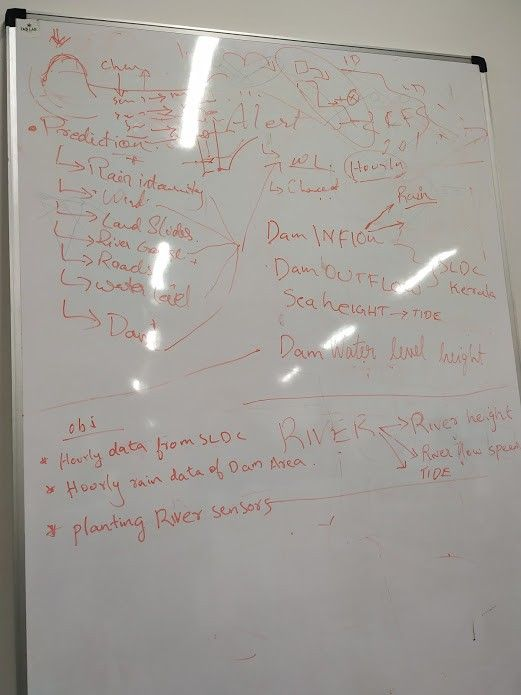 1D
Prediction
Alert
CF
2.0
Rain intansity
Wind
Land Slides.
River
Roads
Water level
Dam
WL
Hourly
Rain
Dam INFlOW
Dam OUTFLOW
SLDC
Kerala
Sea hEIGHT → TIDE
Dam Water level height
obj
* Hourly data from SLDC
* Hoorly rain data of Dam Area.
* planting River sensors
RIVER
River height
River flow speed
TIDE